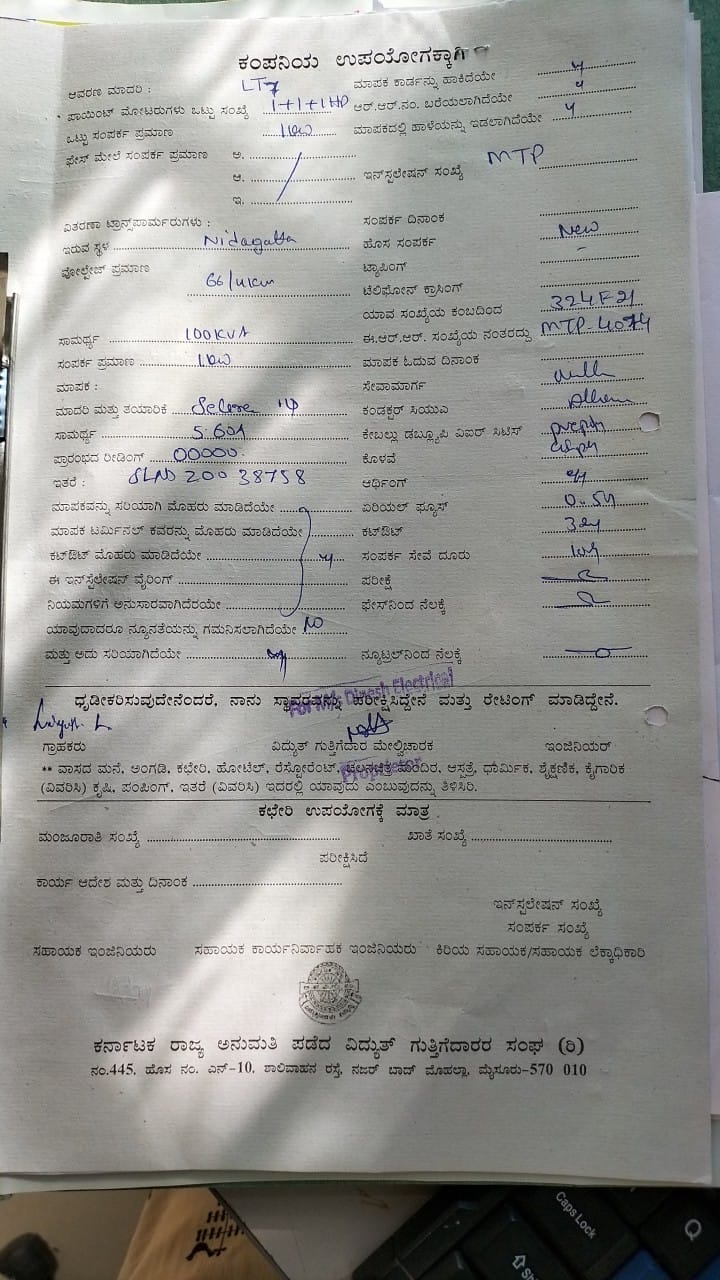 ಕಂಪನಿಯ ಉಪಯೋಗಕ್ಕಾಗಿ
ಆವರಣ ಮಾದರಿ : LT7 ಮಾಪಕ ಕಾರ್ಡನ್ನು ಹಾಕಿದೆಯೇ y
ಪಾಯಿಂಟ್ ಮೋಟರುಗಳು ಒಟ್ಟು ಸಂಖ್ಯೆ 1+1+1HP ಆರ್.ಆರ್.ನಂ. ಬರೆಯಲಾಗಿದೆಯೇ y
ಒಟ್ಟು ಸಂಪರ್ಕ ಪ್ರಮಾಣ 1kw ಮಾಪಕದಲ್ಲಿ ಹಾಳೆಯನ್ನು ಇಡಲಾಗಿದೆಯೇ y
ಫೇಸ್ ಮೇಲೆ ಸಂಪರ್ಕ ಪ್ರಮಾಣ ಅ.
ಆ. ಇನ್‌ಸ್ಟಲೇಷನ್ ಸಂಖ್ಯೆ MTP
ಇ.
ವಿತರಣಾ ಟ್ರಾನ್ಸ್‌ಪಾರ್ಮರುಗಳು : ಸಂಪರ್ಕ ದಿನಾಂಕ
ಇರುವ ಸ್ಥಳ Nidagatta ಹೊಸ ಸಂಪರ್ಕ New
ವೋಲ್ಟೇಜ್ ಪ್ರಮಾಣ ಟ್ಯಾಪಿಂಗ್ -
66/11km ಟೆಲಿಫೋನ್ ಕ್ರಾಸಿಂಗ್
ಯಾವ ಸಂಖ್ಯೆಯ ಕಂಬದಿಂದ 324F21
ಸಾಮರ್ಥ್ಯ 100KVA ಈ.ಆರ್.ಆರ್. ಸಂಖ್ಯೆಯ ನಂತರದ್ದು MTP-4074
ಸಂಪರ್ಕ ಪ್ರಮಾಣ 1kw ಮಾಪಕ ಓದುವ ದಿನಾಂಕ
ಮಾಪಕ : ಸೇವಾಮಾರ್ಗ
ಮಾದರಿ ಮತ್ತು ತಯಾರಿಕೆ ಕಂಡಕ್ಟರ್ ಸಿಯುಎ
ಸಾಮರ್ಥ್ಯ 5-60A ಕೇಬಲ್ಲು ಡಬ್ಲ್ಯೂಪಿ ವಿಐರ್ ಸಿಟಿಸ್
ಪ್ರಾರಂಭದ ರೀಡಿಂಗ್ 00000 ಕೊಳವೆ
ಇತರೆ : SLND 20038758 ಆರ್ಥಿಂಗ್
ಮಾಪಕವನ್ನು ಸರಿಯಾಗಿ ಮೊಹರು ಮಾಡಿದೆಯೇ ಏರಿಯಲ್ ಫ್ಯೂಸ್
ಮಾಪಕ ಟರ್ಮಿನಲ್ ಕವರನ್ನು ಮೊಹರು ಮಾಡಿದೆಯೇ ಕಟ್‌ಔಟ್
ಕಟ್‌ಔಟ್ ಮೊಹರು ಮಾಡಿದೆಯೇ ಸಂಪರ್ಕ ಸೇವೆ ದೂರು
ಈ ಇನ್‌ಸ್ಟಲೇಷನ್ ವೈರಿಂಗ್ ಪರೀಕ್ಷೆ
ನಿಯಮಗಳಿಗೆ ಅನುಸಾರವಾಗಿದೆರಯೇ ಫೇಸ್‌ನಿಂದ ನೆಲಕ್ಕೆ
ಯಾವುದಾದರೂ ನ್ಯೂನತೆಯನ್ನು ಗಮನಿಸಲಾಗಿದೆಯೇ NO
ಮತ್ತು ಅದು ಸರಿಯಾಗಿದೆಯೇ ನ್ಯೂಟ್ರಲ್‌ನಿಂದ ನೆಲಕ್ಕೆ
For M/s Dinesh Electrical
ಧೃಡೀಕರಿಸುವುದೇನೆಂದರೆ, ನಾನು ಸ್ಥಾವರವನ್ನು ಪರೀಕ್ಷಿಸಿದ್ದೇನೆ ಮತ್ತು ರೇಟಿಂಗ್ ಮಾಡಿದ್ದೇನೆ.
ಗ್ರಾಹಕರು ವಿದ್ಯುತ್ ಗುತ್ತಿಗೆದಾರ ಮೇಲ್ವಿಚಾರಕ ಇಂಜಿನಿಯರ್
Proprietor
** ವಾಸದ ಮನೆ, ಅಂಗಡಿ, ಕಛೇರಿ, ಹೋಟೆಲ್, ರೆಸ್ಟೋರೆಂಟ್, ಚಲನಚಿತ್ರ ಮಂದಿರ, ಆಸ್ಪತ್ರೆ, ಧಾರ್ಮಿಕ, ಶೈಕ್ಷಣಿಕ, ಕೈಗಾರಿಕ
(ವಿವರಿಸಿ) ಕೃಷಿ, ಪಂಪಿಂಗ್, ಇತರೆ (ವಿವರಿಸಿ) ಇದರಲ್ಲಿ ಯಾವುದು ಎಂಬುವನ್ನು ತಿಳಿಸಿರಿ.
ಕಛೇರಿ ಉಪಯೋಗಕ್ಕೆ ಮಾತ್ರ
ಮಂಜೂರಾತಿ ಸಂಖ್ಯೆ ಖಾತೆ ಸಂಖ್ಯೆ
ಪರೀಕ್ಷಿಸಿದೆ
ಕಾರ್ಯ ಆದೇಶ ಮತ್ತು ದಿನಾಂಕ
ಇನ್‌ಸ್ಟಲೇಷನ್ ಸಂಖ್ಯೆ
ಸಂಪರ್ಕ ಸಂಖ್ಯೆ
ಸಹಾಯಕ ಇಂಜಿನಿಯರು ಸಹಾಯಕ ಕಾರ್ಯನಿರ್ವಾಹಕ ಇಂಜಿನಿಯರು ಕಿರಿಯ ಸಹಾಯಕ/ಸಹಾಯಕ ಲೆಕ್ಕಾಧಿಕಾರಿ
ಕರ್ನಾಟಕ ರಾಜ್ಯ ಅನುಮತಿ ಪಡೆದ ವಿದ್ಯುತ್ ಗುತ್ತಿಗೆದಾರರ ಸಂಘ (ರಿ)
ನಂ.445, ಹೊಸ ನಂ. ಎನ್-10, ಶಾಲಿವಾಹನ ರಸ್ತೆ, ನಜರ್ ಬಾದ್ ಮೊಹಲ್ಲಾ, ಮೈಸೂರು-570 010
Caps Lock
Q